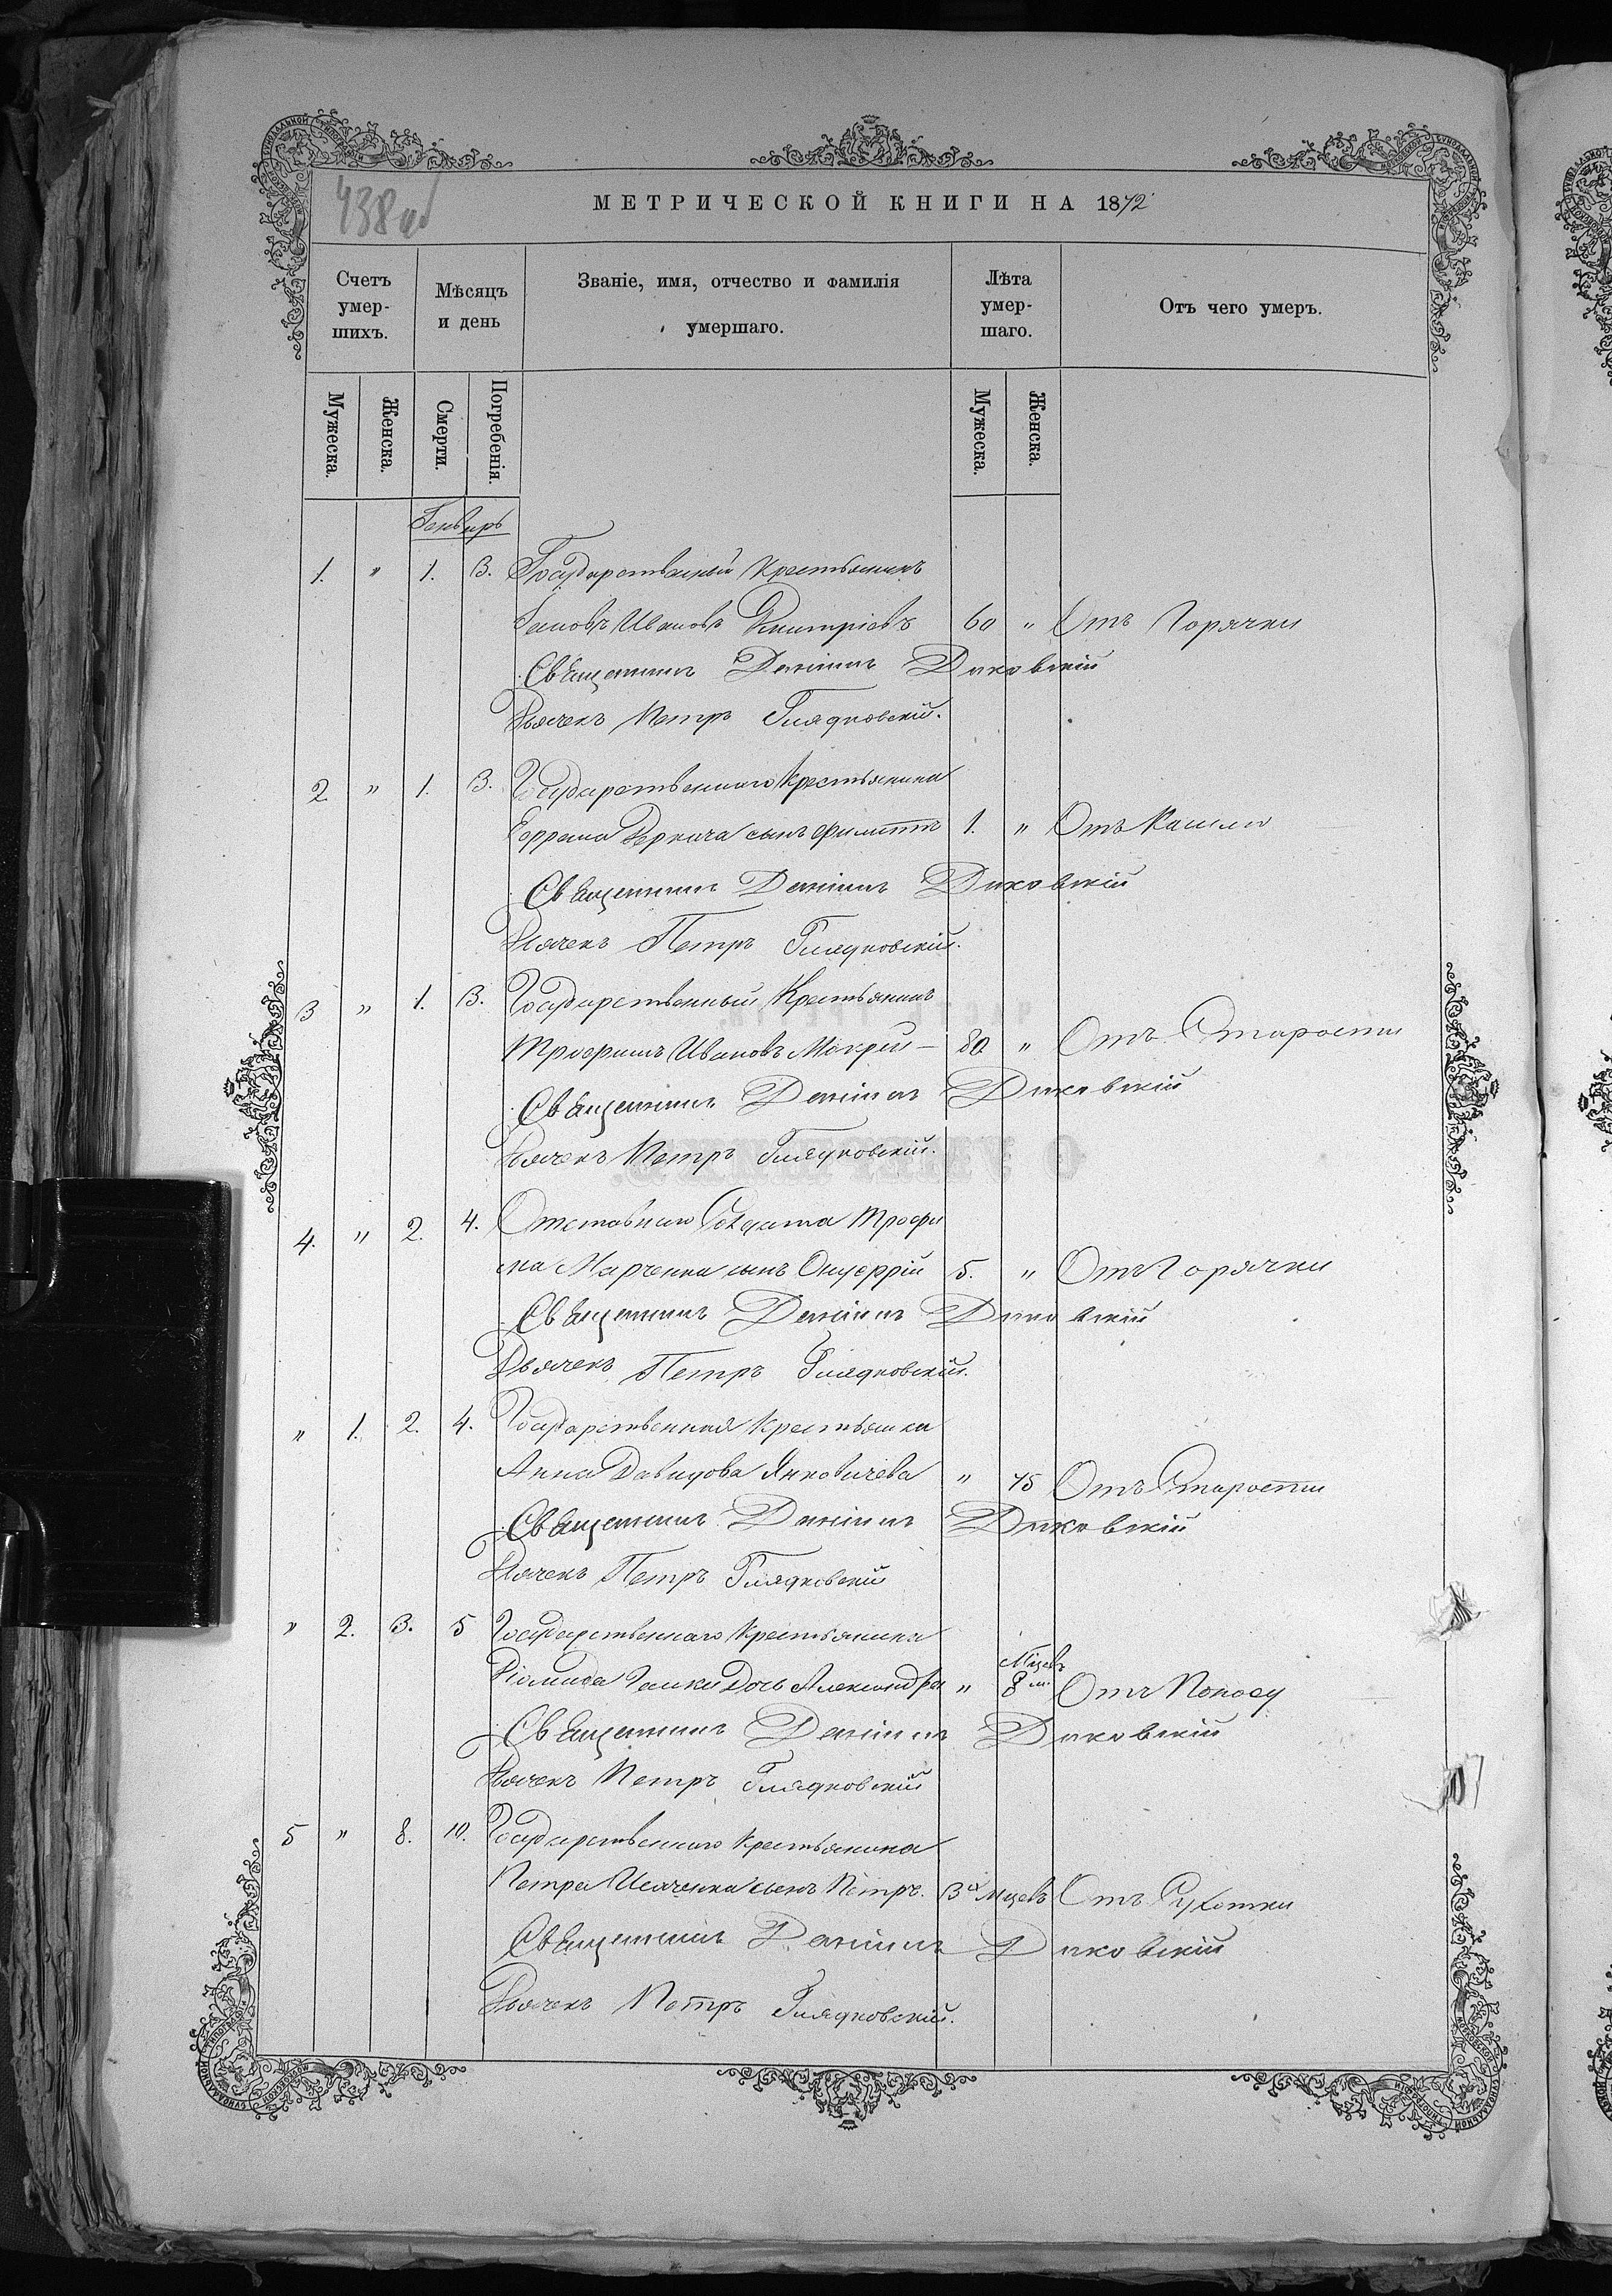 438 об
МЕТРИЧЕСКОЙ КНИГИ НА 1872
Счетъ умер-шихъ.
Мѣсяцъ и день
Званіе, имя, отчество и фамилія умершаго.
Лѣта умер-шаго.
Отъ чего умеръ.
Мужеска.
Женска.
Смерти.
Погребенія.
Мужеска.
Женска.
Генварь
1. " 1. 3. Государственный Крестьянинъ
Иванов Дмитріевъ 60 " Отъ Горячки
Священникъ Даніилъ Диковскій
Дьячекъ Петръ Гладковскій.
2. " 1. 3. Государственнаго Крестьянина
Ефрема Деркача сынъ Филиппъ 1. " Отъ Кашлю
Священникъ Даніилъ Диковскій
Дьячекъ Петръ Гладковскій.
3 " 1. 3. Государственный Крестьянинъ
Трофимъ Ивановъ Мокрый — 80 " Отъ Старости
Священникъ Даніилъ Диковскій
Дьячекъ Петръ Гладковскій.
4. " 2. 4. Отставнаго Солдата Трофи
ма Марченка сынъ Онуфрій 5. " Отъ Горячки
Священникъ Даніилъ Диковскій
Дьячекъ Петръ Гладковскій.
" 1. 2. 4. Государственная Крестьянка
Анна Давидова Янковичева " 75 Отъ Старости
Священникъ Даніилъ Диковскій
Дьячекъ Петръ Гладковскій
" 2. 3. 5 Государственнаго Крестьянина
Діомида Дочь Александра " 8 Отъ Поносу
Священникъ Даніилъ Диковскій
Дьячекъ Петръ Гладковскій
5 " 8. 10. Государственнаго Крестьянина
Петра Исаченка сынъ Петръ. 3х мцевъ Отъ Сухотки
Священникъ Даніилъ Диковскій
Дьячекъ Петръ Гладковскій.